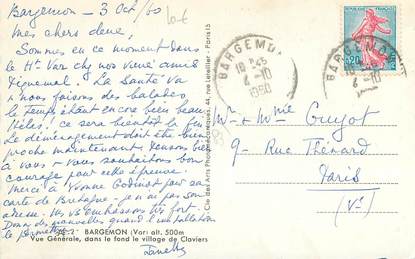 Bargemon - 3 Oct/60
Mes chers deux,
Sommes en ce moment dans
le Ht Var chez nos vieux amis
La Santé va
& nous faisons des balades
le temps étant encore bien beau
ce sera bientôt la fin
Le déménagement doit être bien
proche maintenant. Pensons bien
à vous & vous souhaitons bon
courage pour cette épreuve.
Merci à Yvonne Godinot par sa
carte de Bretagne - je n'ai pas son
adresse. Vs embrassons très fort.
Donne des nouvelles quand l'installation
le permettra.
Janette
2 BARGEMON (Var) alt. 500m
Vue Générale, dans le fond le village de Claviers
Cie des Arts Photomécaniques, 44, rue Letellier - Paris 15
BARGEMON
18 H 45
4-10
1960
BARGEMON
4-10
0,20
Mr & Mme Guyot
9 - Rue Thénard
Paris
(Ve)